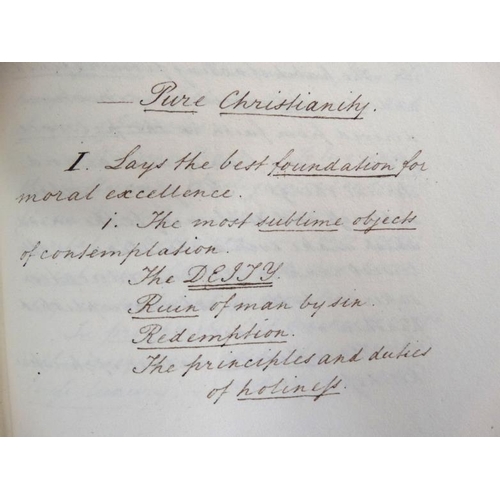 — Pure Christianity.
I. Lays the best foundation for
moral excellence.
i. The most sublime objects
of contemplation.
The DEITY.
Ruin of man by sin.
Redemption.
The principles and duties
of holineſs.